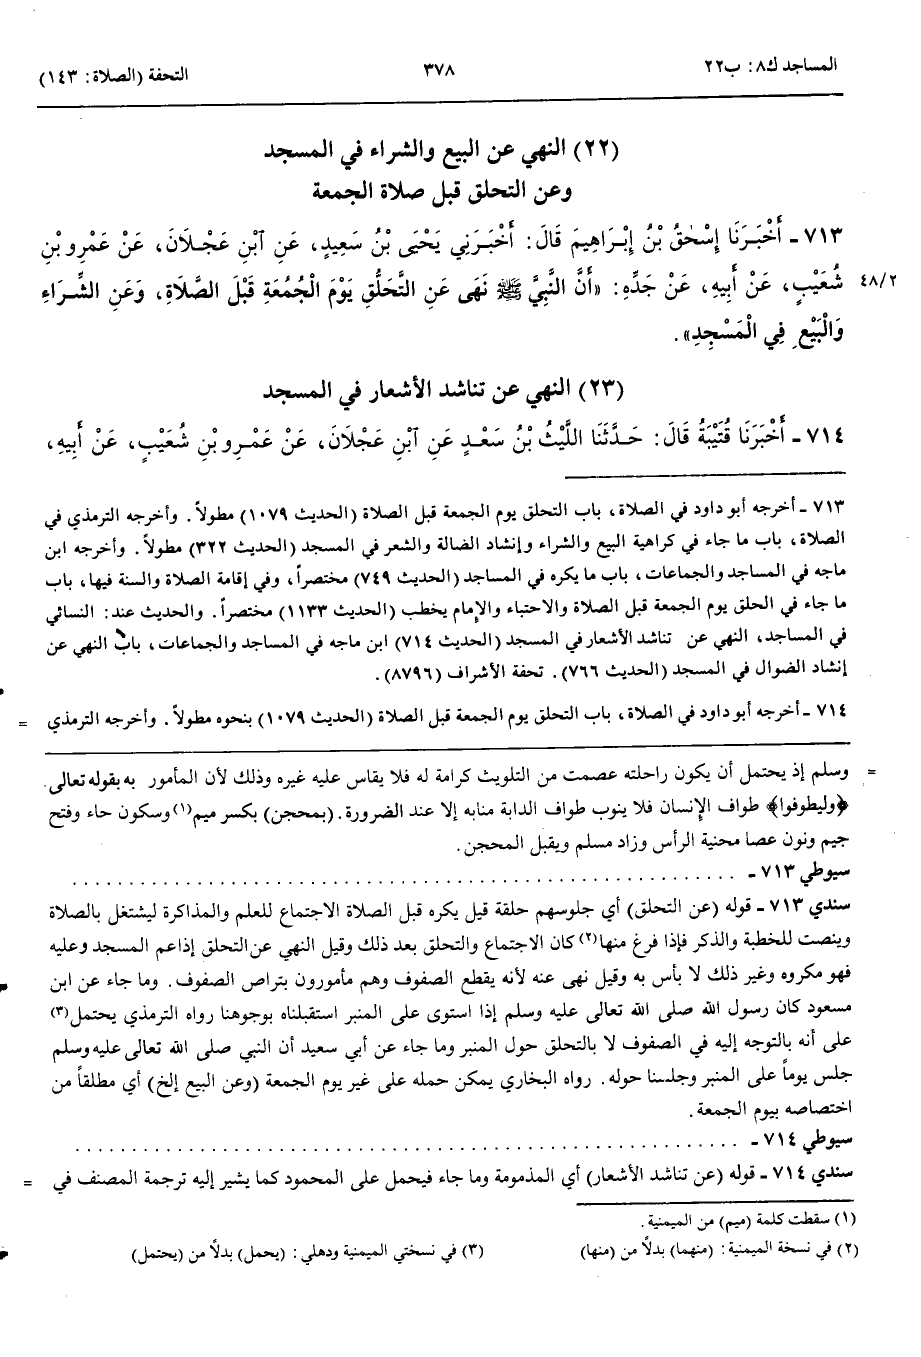 المساجد ك٨: ب٢٢ ٣٧٨ التحفة (الصلاة: ١٤٣)
(٢٢) النهي عن البيع والشراء في المسجد
وعن التحلق قبل صلاة الجمعة
٧١٣ ـ أَخْبَرَنَا إِسْحٰقُ بْنُ إِبْرَاهِيمَ قَالَ: أَخْبَرَنِي يَحْيَى بْنُ سَعِيدٍ، عَنِ ٱبْنِ عَجْلَانَ، عَنْ عَمْرِو بْنِ
شُعَيْبٍ، عَنْ أَبِيهِ، عَنْ جَدِّهِ: «أَنَّ النَّبِيَّ ﷺ نَهَى عَنِ التَّحَلُّقِ يَوْمَ الْجُمُعَةِ قَبْلَ الصَّلَاةِ، وَعَنِ الشِّرَاءِ ٤٨/٢
وَالْبَيْعِ فِي الْمَسْجِدِ».
(٢٣) النهي عن تناشد الأشعار في المسجد
٧١٤ ـ أَخْبَرَنَا قُتَيْبَةُ قَالَ: حَدَّثَنَا اللَّيْثُ بْنُ سَعْدٍ عَنِ ٱبْنِ عَجْلَانَ، عَنْ عَمْرِو بْنِ شُعَيْبٍ، عَنْ أَبِيهِ،
٧١٣ ـ أخرجه أبو داود في الصلاة، باب التحلق يوم الجمعة قبل الصلاة (الحديث ١٠٧٩) مطولاً. وأخرجه الترمذي في
الصلاة، باب ما جاء في كراهية البيع والشراء وإنشاد الضالة والشعر في المسجد (الحديث ٣٢٢) مطولاً. وأخرجه ابن
ماجه في المساجد والجماعات، باب ما يكره في المساجد (الحديث ٧٤٩) مختصراً، وفي إقامة الصلاة والسنة فيها، باب
ما جاء في الحلق يوم الجمعة قبل الصلاة والاحتباء والإمام يخطب (الحديث ١١٣٣) مختصراً. والحديث عند: النسائي
في المساجد، النهي عن تناشد الأشعار في المسجد (الحديث ٧١٤) ابن ماجه في المساجد والجماعات، باب النهي عن
إنشاد الضوال في المسجد (الحديث ٧٦٦). تحفة الأشراف (٨٧٩٦).
٧١٤ ـ أخرجه أبو داود في الصلاة، باب التحلق يوم الجمعة قبل الصلاة (الحديث ١٠٧٩) بنحوه مطولاً. وأخرجه الترمذي =
= وسلم إذ يحتمل أن يكون راحلته عصمت من التلويث كرامة له فلا يقاس عليه غيره وذلك لأن المأمور به بقوله تعالى.
﴿وليطوفوا﴾ طواف الإنسان فلا ينوب طواف الدابة منابه إلا عند الضرورة. (بمحجن) بكسر ميم(١) وسكون حاء وفتح
جيم ونون عصا محنية الرأس وزاد مسلم ويقبل المحجن.
سيوطي ٧١٣ ـ . . . . . . . . . . . . . . . . . . . .
سندي ٧١٣ ـ قوله (عن التحلق) أي جلوسهم حلقة قيل يكره قبل الصلاة الاجتماع للعلم والمذاكرة ليشتغل بالصلاة
وينصت للخطبة والذكر فإذا فرغ منها(٢) كان الاجتماع والتحلق بعد ذلك وقيل النهي عن التحلق إذا عم المسجد وعليه
فهو مكروه وغير ذلك لا بأس به وقيل نهى عنه لأنه يقطع الصفوف وهم مأمورون بتراص الصفوف. وما جاء عن ابن
مسعود كان رسول الله صلى الله تعالى عليه وسلم إذا استوى على المنبر استقبلناه بوجوهنا رواه الترمذي يحتمل(٣)
على أنه بالتوجه إليه في الصفوف لا بالتحلق حول المنبر وما جاء عن أبي سعيد أن النبي صلى الله تعالى عليه وسلم
جلس يوماً على المنبر وجلسنا حوله. رواه البخاري يمكن حمله على غير يوم الجمعة (وعن البيع إلخ) أي مطلقاً من
اختصاصه بيوم الجمعة.
سيوطي ٧١٤ ـ . . . . . . . . . . . . . . . . . . . .
سندي ٧١٤ ـ قوله (عن تناشد الأشعار) أي المذمومة وما جاء فيحمل على المحمود كما يشير إليه ترجمة المصنف في =
(١) سقطت كلمة (ميم) من الميمنية.
(٢) في نسخة الميمنية: (منهما) بدلاً من (منها) (٣) في نسختي الميمنية ودهلي: (يحمل) بدلاً من (يحتمل)